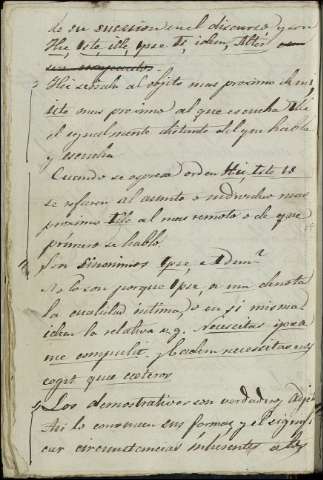 de su sucesion en el discurso, y son
Hic, iste, ille, ipse, is, idem, Alter
Hic señala al objeto mas proximo
iste mas proximo al que escucha Ille
el igualmente distante del que habla
y escucha
Cuando se espresa orden Hic, Iste is
se refieren al asunto o individuo mas
proximo Ille al mas remoto o de que
primero se habló.
Son sinonimos Ipse, e Idem?
No lo son porque Ipse denota
la cualidad intima en si misma
idem la relativa v.g. Necessitas ipsa
me compulit, y Eadem necessitas
cogit quæ ceteros
Los demostrativos son verdaderos
lo convencen sus formas, y el signifi
car circunstancias inherentes a los